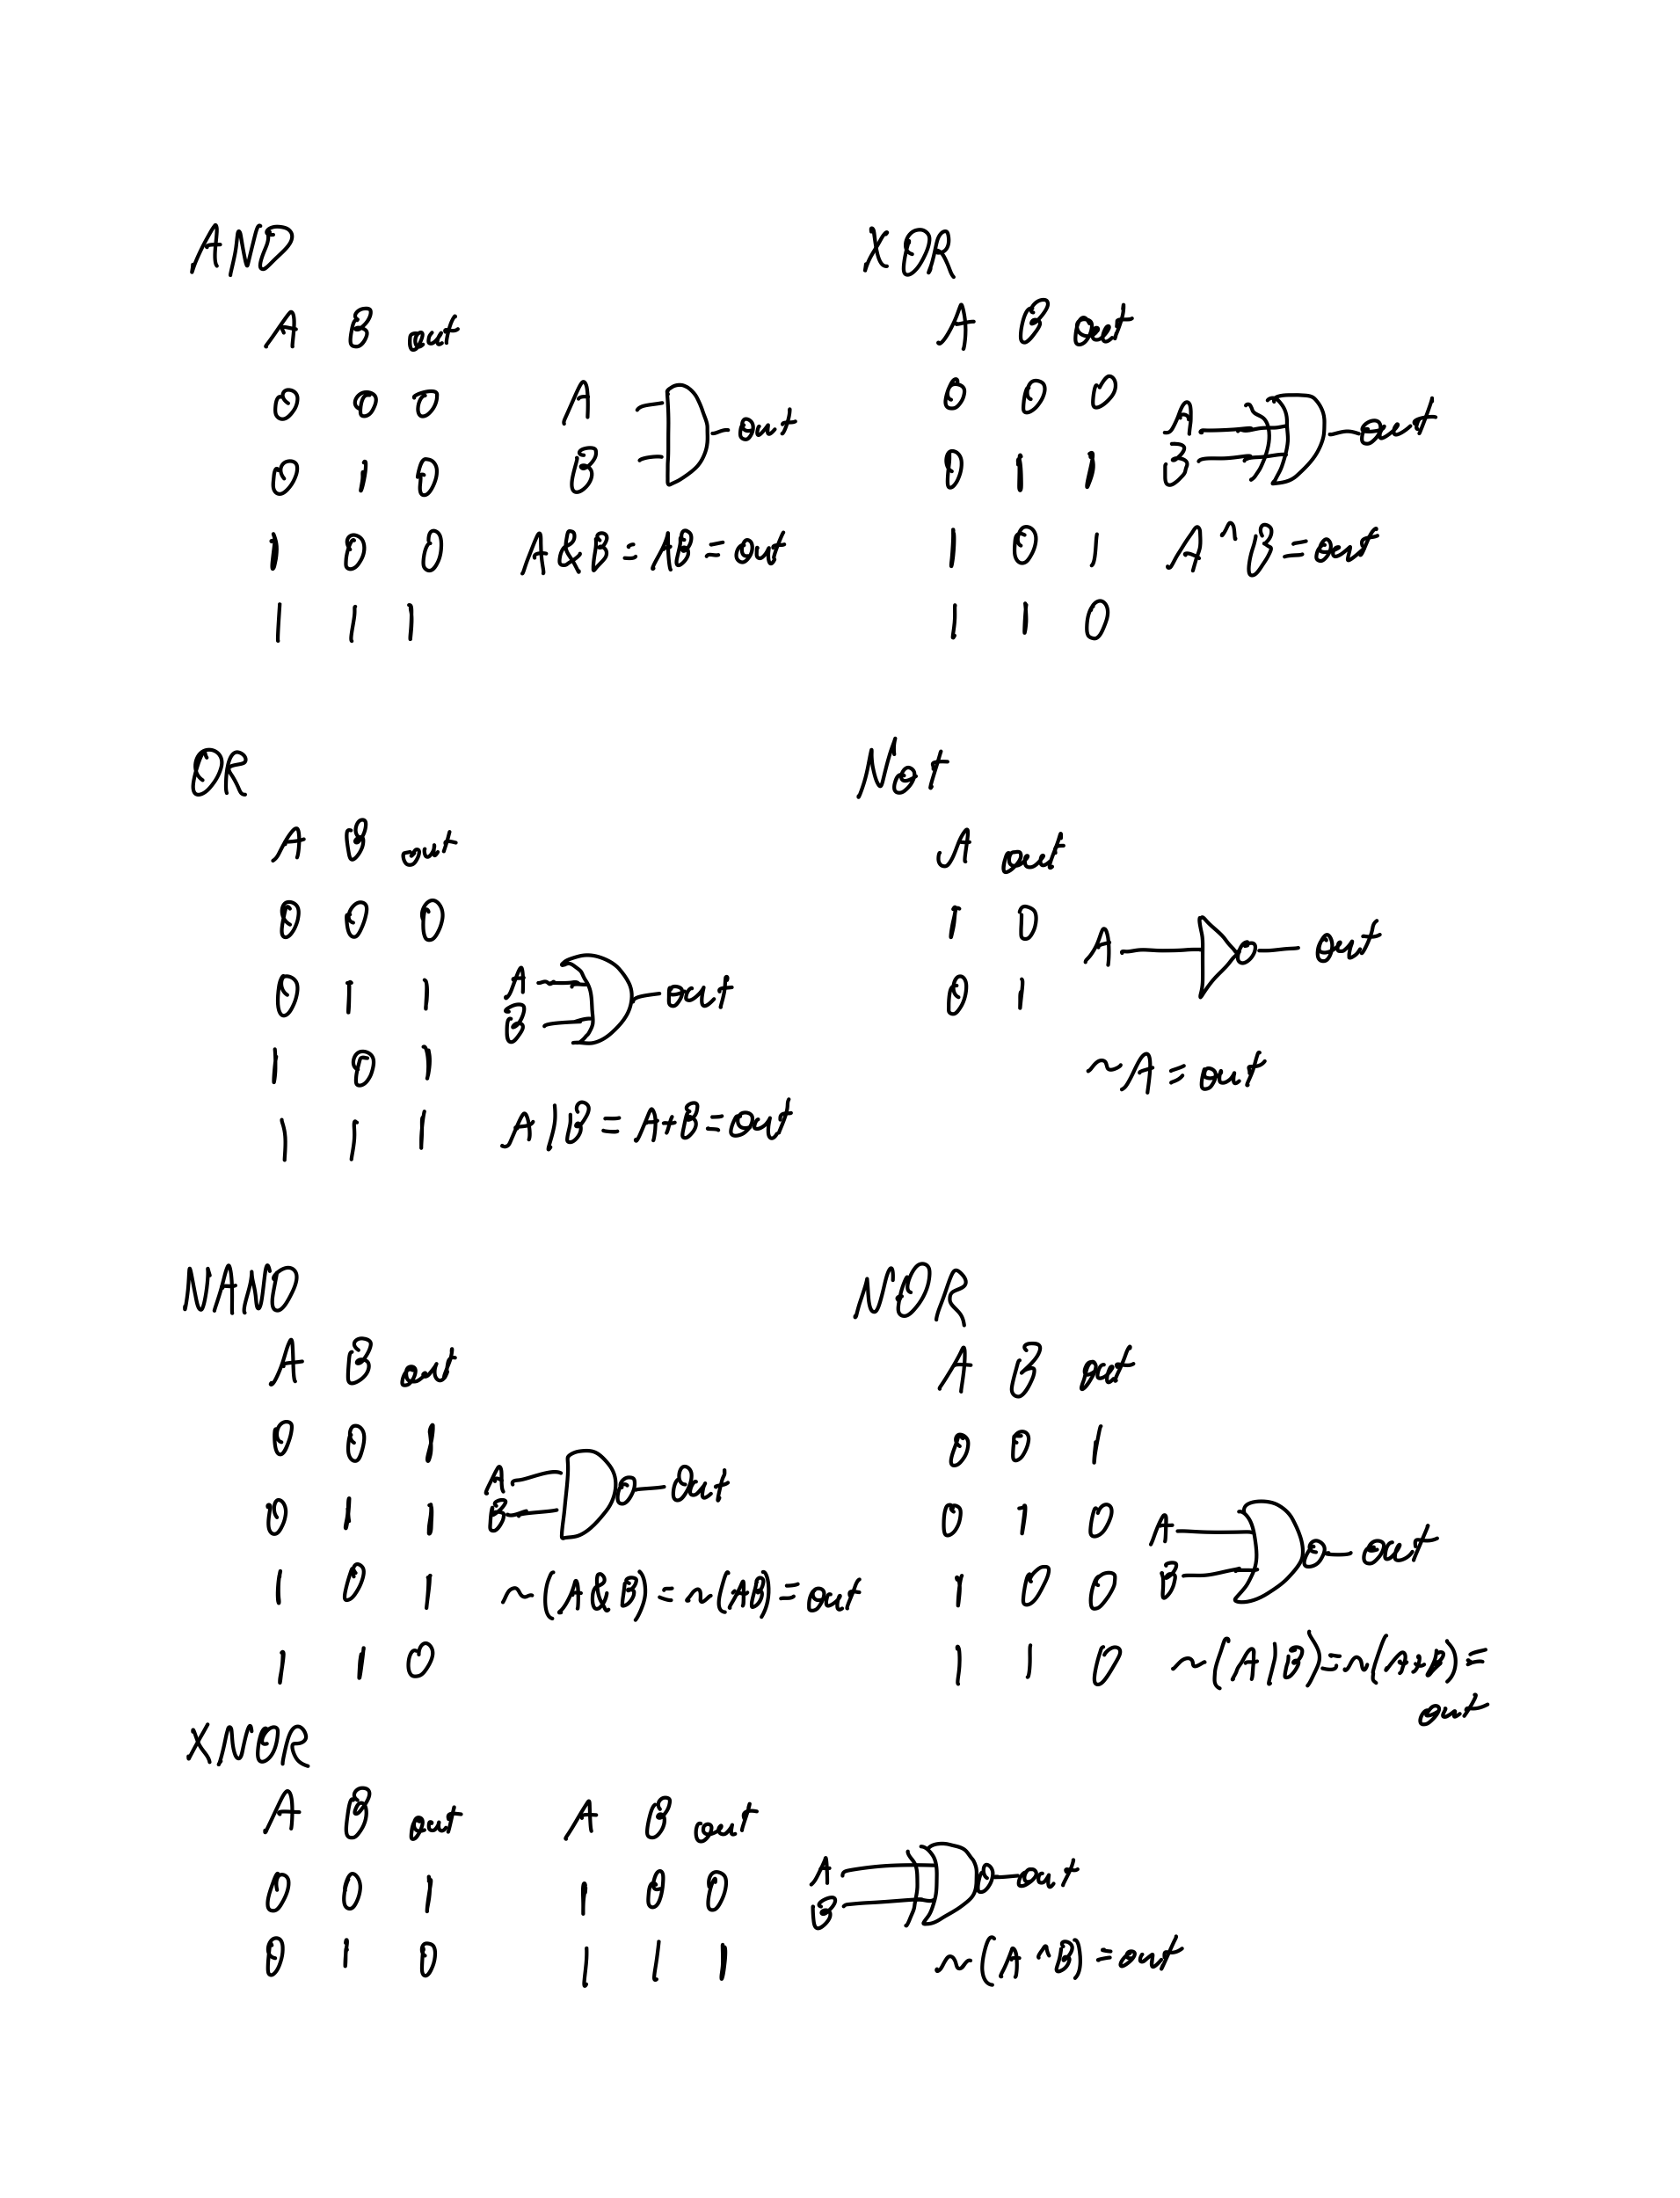 AND
A B out
0 0 0
0 1 0
1 0 0
1 1 1
A
B
out
A&B=AB=out
XOR
A B out
0 0 0
0 1 1
1 0 1
1 1 0
A
B
out
A^B=out
OR
A B out
0 0 0
0 1 1
1 0 1
1 1 1
A
B
out
A|B=A+B=out
Not
A out
1 0
0 1
A
out
~A=out
NAND
A B out
0 0 1
0 1 1
1 0 1
1 1 0
A
B
out
~(A&B)=~(AB)=out
NOR
A B out
0 0 1
0 1 0
1 0 0
1 1 0
A
B
out
~(A|B)=~(A+B)=
out
XNOR
A B out
0 0 1
0 1 0
A B out
1 0 0
1 1 1
A
B
out
~(A^B)=out